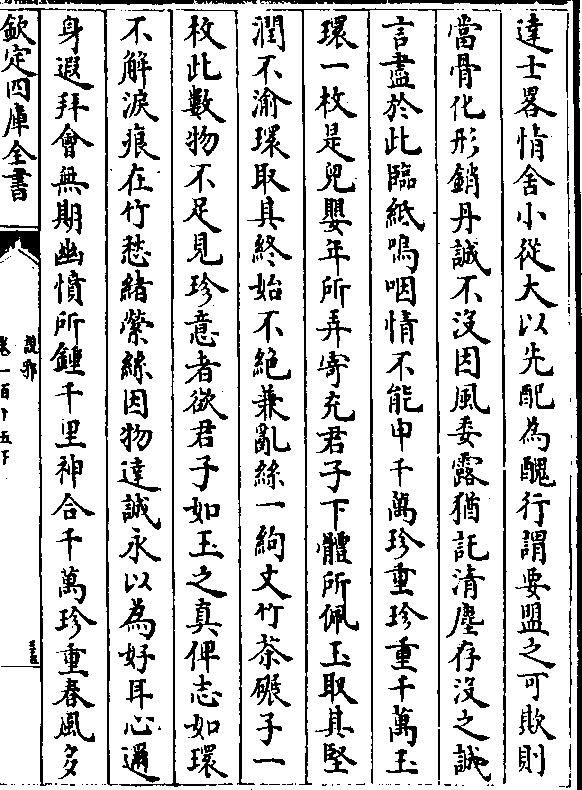 達士畧情舍小從大以先配為醜行謂要盟之可欺則
當骨化形銷丹誠不沒因風委露猶託清塵存沒之誠
言盡於此臨紙嗚咽情不能申千萬珍重珍重千萬玉
環一枚是兒嬰年所弄寄充君子下體所佩玉取其堅
潤不渝環取其終始不絶兼亂絲一絇文竹茶碾子一
枚此數物不足見珍意者欲君子如玉之真俾志如環
不解淚痕在竹愁緒縈絲因物達誠永以為好耳心邇
身遐拜會無期幽憤所鍾千里神合千萬珍重春風多
欽定四庫全書
說郛
卷一百十五下